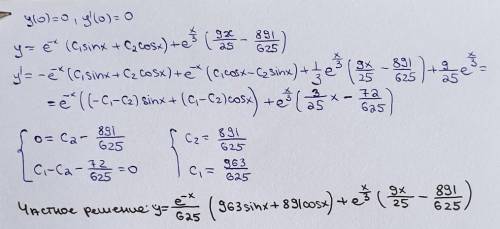 y(0)=0, y'(0)=0
y = e^{-x} (C₁sinx + C₂cosx) + e^{x/3} (9x/25 - 891/625)
y' = -e^{-x}(C₁sinx + C₂cosx) + e^{-x}(C₁cosx - C₂sinx) + 1/3 e^{x/3} (9x/25 - 891/625) + 9/25 e^{x/3} =
= e^{-x} ((-C₁-C₂) sinx + (C₁-C₂) cosx) + e^{x/3} (3/25 x - 72/625)
{ 0 = C₂ - 891/625 { C₂ = 891/625
C₁ - C₂ - 72/625 = 0 C₁ = 963/625
Частное решение: y = e^{-x}/625 (963sinx + 891cosx) + e^{x/3} (9x/25 - 891/625)